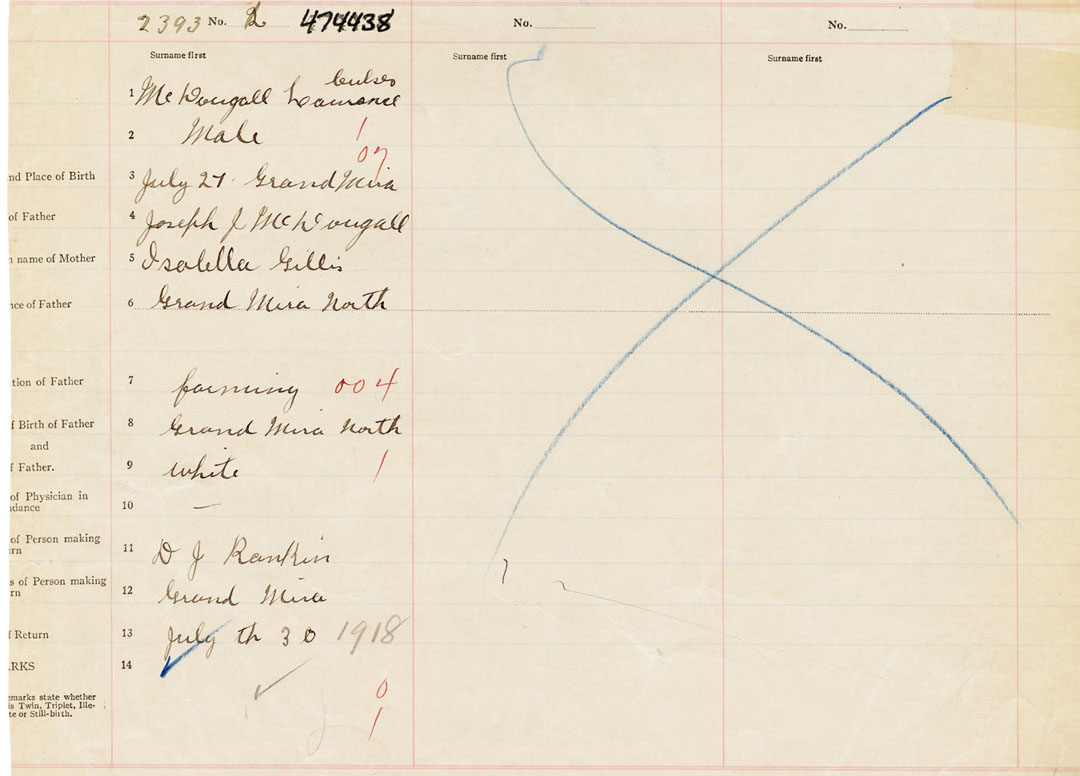 2393 No. 2 474438 No. No.
Surname first Surname first Surname first
1 McDougall Laurance
2 Male 1
07
nd Place of Birth 3 July 27 Grand Mira
of Father 4 Joseph J McDougall
n name of Mother 5 Isabella Gillis
nce of Father 6 Grand Mira North
tion of Father 7 farming 004
f Birth of Father 8 Grand Mira North
and
f Father. 9 White 1
of Physician in
dance 10 —
of Person making
rn 11 D J Rankin
s of Person making
rn 12 Grand Mira
f Return 13 July th 30 1918
ARKS 14
emarks state whether
is Twin, Triplet, Ille-
te or Still-birth.
0
1